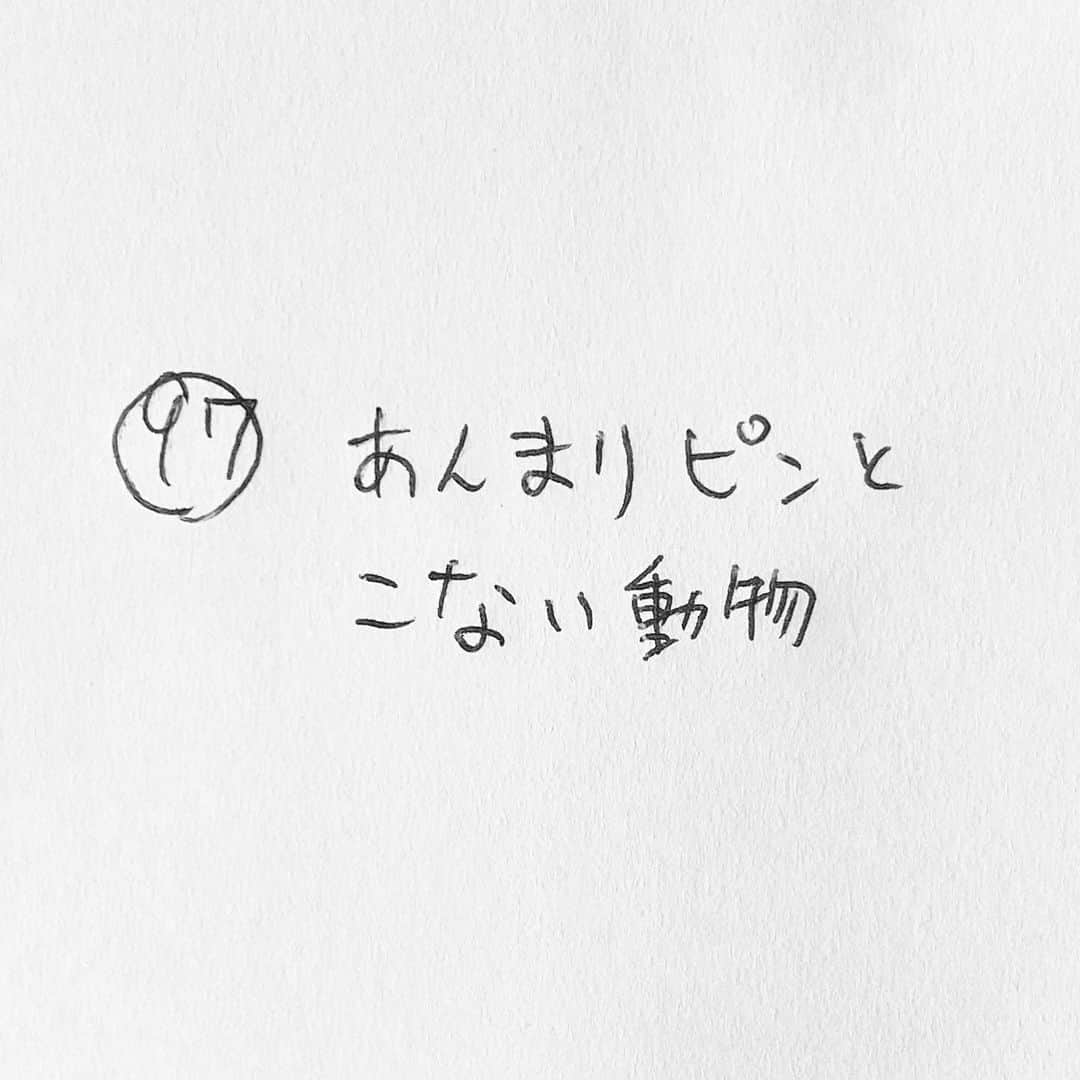 97 あんまりピンと
こない動物